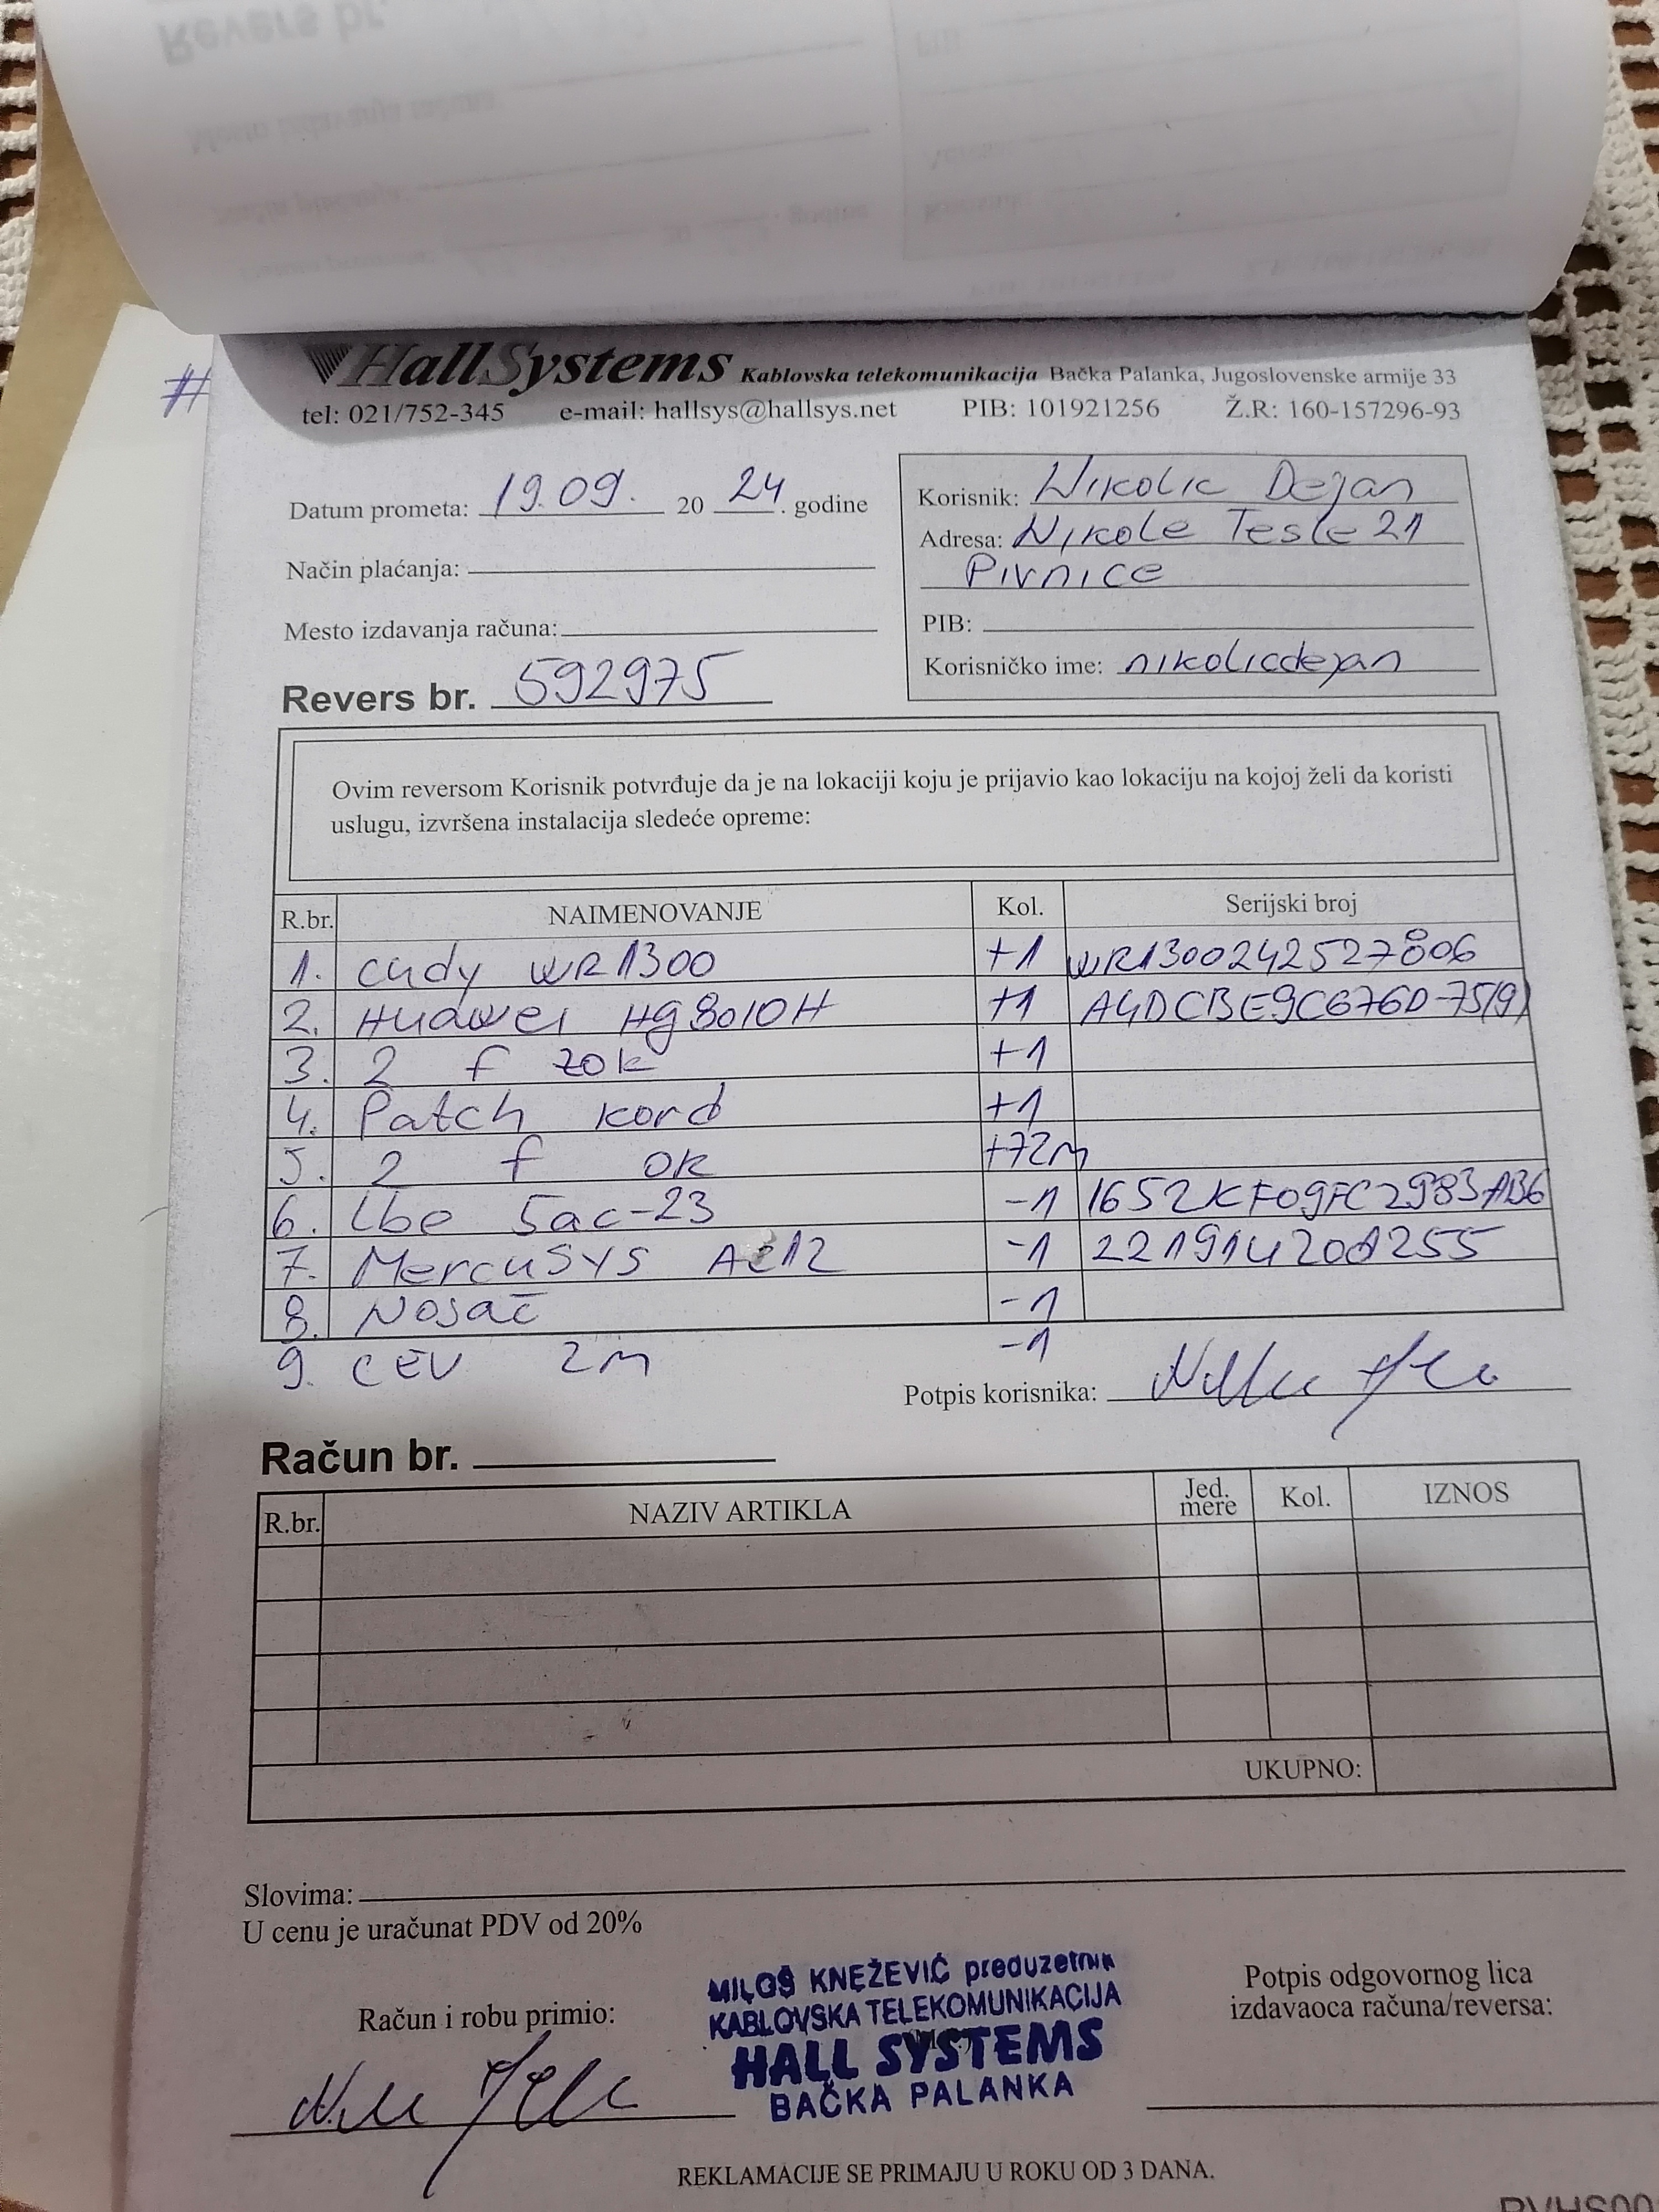 Revers br.
#
HallSystems Kablovska telekomunikacija Bačka Palanka, Jugoslovenske armije 33
tel: 021/752-345 e-mail: hallsys@hallsys.net PIB: 101921256 Ž.R: 160-157296-93
Datum prometa: 19.09. 20 24. godine
Način plaćanja:
Mesto izdavanja računa:
Revers br. 592975
Korisnik: Nikolic Dejan
Adresa: Nikole Tesle 21
Pivnice
PIB:
Korisničko ime: nikolicdejan
Ovim reversom Korisnik potvrđuje da je na lokaciji koju je prijavio kao lokaciju na kojoj želi da koristi
uslugu, izvršena instalacija sledeće opreme:
R.br. NAIMENOVANJE Kol. Serijski broj
1. cudy WR1300 +1 WR1300242527806
2. Huawei Hg8010H +1 A4DCBE9C676D-75(9)
3. 2 f zok +1
4. Patch kord +1
5. 2 f ok +72m
6. Lbe 5ac-23 -1 1652KF09FC2983AB6
7. MercuSYS Ac12 -1
8. Nosač -1
9. CEV 2m -1
Potpis korisnika:
Račun br.
R.br. NAZIV ARTIKLA Jed. mere Kol. IZNOS
UKUPNO:
Slovima:
U cenu je uračunat PDV od 20%
Račun i robu primio:
MILOŠ KNEŽEVIĆ preduzetnik
KABLOVSKA TELEKOMUNIKACIJA
HALL SYSTEMS
BAČKA PALANKA
Potpis odgovornog lica
izdavaoca računa/reversa:
REKLAMACIJE SE PRIMAJU U ROKU OD 3 DANA.